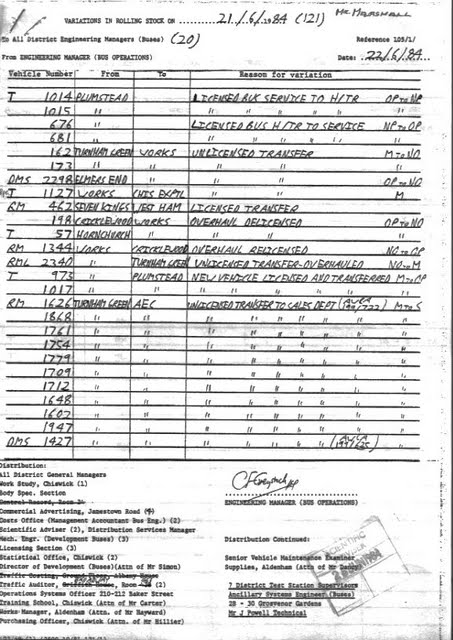 Mr. Marshall
VARIATIONS IN ROLLING STOCK ON 21/6/1984 (121)
To All District Engineering Managers (Buses) (20) Reference 109/1/
From ENGINEERING MANAGER (BUS OPERATIONS) Date: 22/6/84
Vehicle Number From To Reason for variation
T 1014 PLUMSTEAD LICENSED BUS SERVICE TO H/TR OP TO NP
1015 " " " " " "
676 LICENSED BUS H/TR TO SERVICE NP TO OP
681 " " " " "
162 TURNHAM GREEN WORKS UNLICENSED TRANSFER M TO NO
173 " " " " "
DMS 2298 ELMERS END " " " OP TO NO
T 1127 WORKS CHIS EXPTL " " M
RM 462 SEVEN KINGS WEST HAM LICENSED TRANSFER
198 CRICKLEWOOD WORKS OVERHAUL DELICENSED OP TO NO
T 57 HORNCHURCH " " " "
RM 1344 WORKS CRICKLEWOOD OVERHAUL RELICENSED NO TO OP
RML 2340 " TURNHAM GREEN UNLICENSED TRANSFER-OVERHAULED NO TO M
T 973 " PLUMSTEAD NEW VEHICLE LICENSED AND TRANSFERRED M TO OP
1017 " " " " " " "
RM 1626 TURNHAM GREEN AEC UNLICENSED TRANSFER TO SALES DEPT M TO S
1868 " " " " " " " "
1761 " " " " " " " "
1754 " " " " " " " "
1779 " " " " " " " "
1709 " " " " " " " "
1712 " " " " " " " "
1648 " " " " " " " "
1607 " " " " " " " "
1947 " " " " " " " "
DMS 1427 " " " " " " "
Distribution:
All District General Managers
Work Study, Chiswick (1)
Body Spec. Section
Commercial Advertising, Jamestown Road
Costs Office (Management Accountant Bus Eng.) (2)
Scientific Adviser (2), Distribution Services Manager
Mech. Engr. (Development Buses) (3)
Licensing Section (3)
Statistical Office, Chiswick (2)
Director of Development (Buses)(Attn of Mr Simon)
Traffic Auditor, Room (2)
Operations Systems Officer 210-212 Baker Street
Training School, Chiswick (Attn of Mr Carter)
Works Manager, Aldenham (Attn. of Mr Hayward)
Purchasing Officer, Chiswick (Attn of Mr Hillier)
ENGINEERING MANAGER (BUS OPERATIONS)
Distribution Continued:
Senior Vehicle Maintenance Examiner
Supplies, Aldenham (Attn of Mr
7 District Test Station Supervisors
Ancillary Systems Engineer (Buses)
28 - 30 Grosvenor Gardens
Mr J Powell Technical